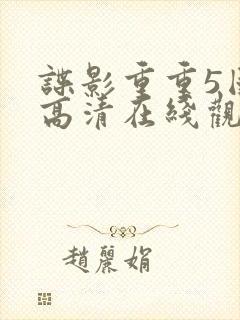 諜影重重5
高清在綫觀
趙麗娟